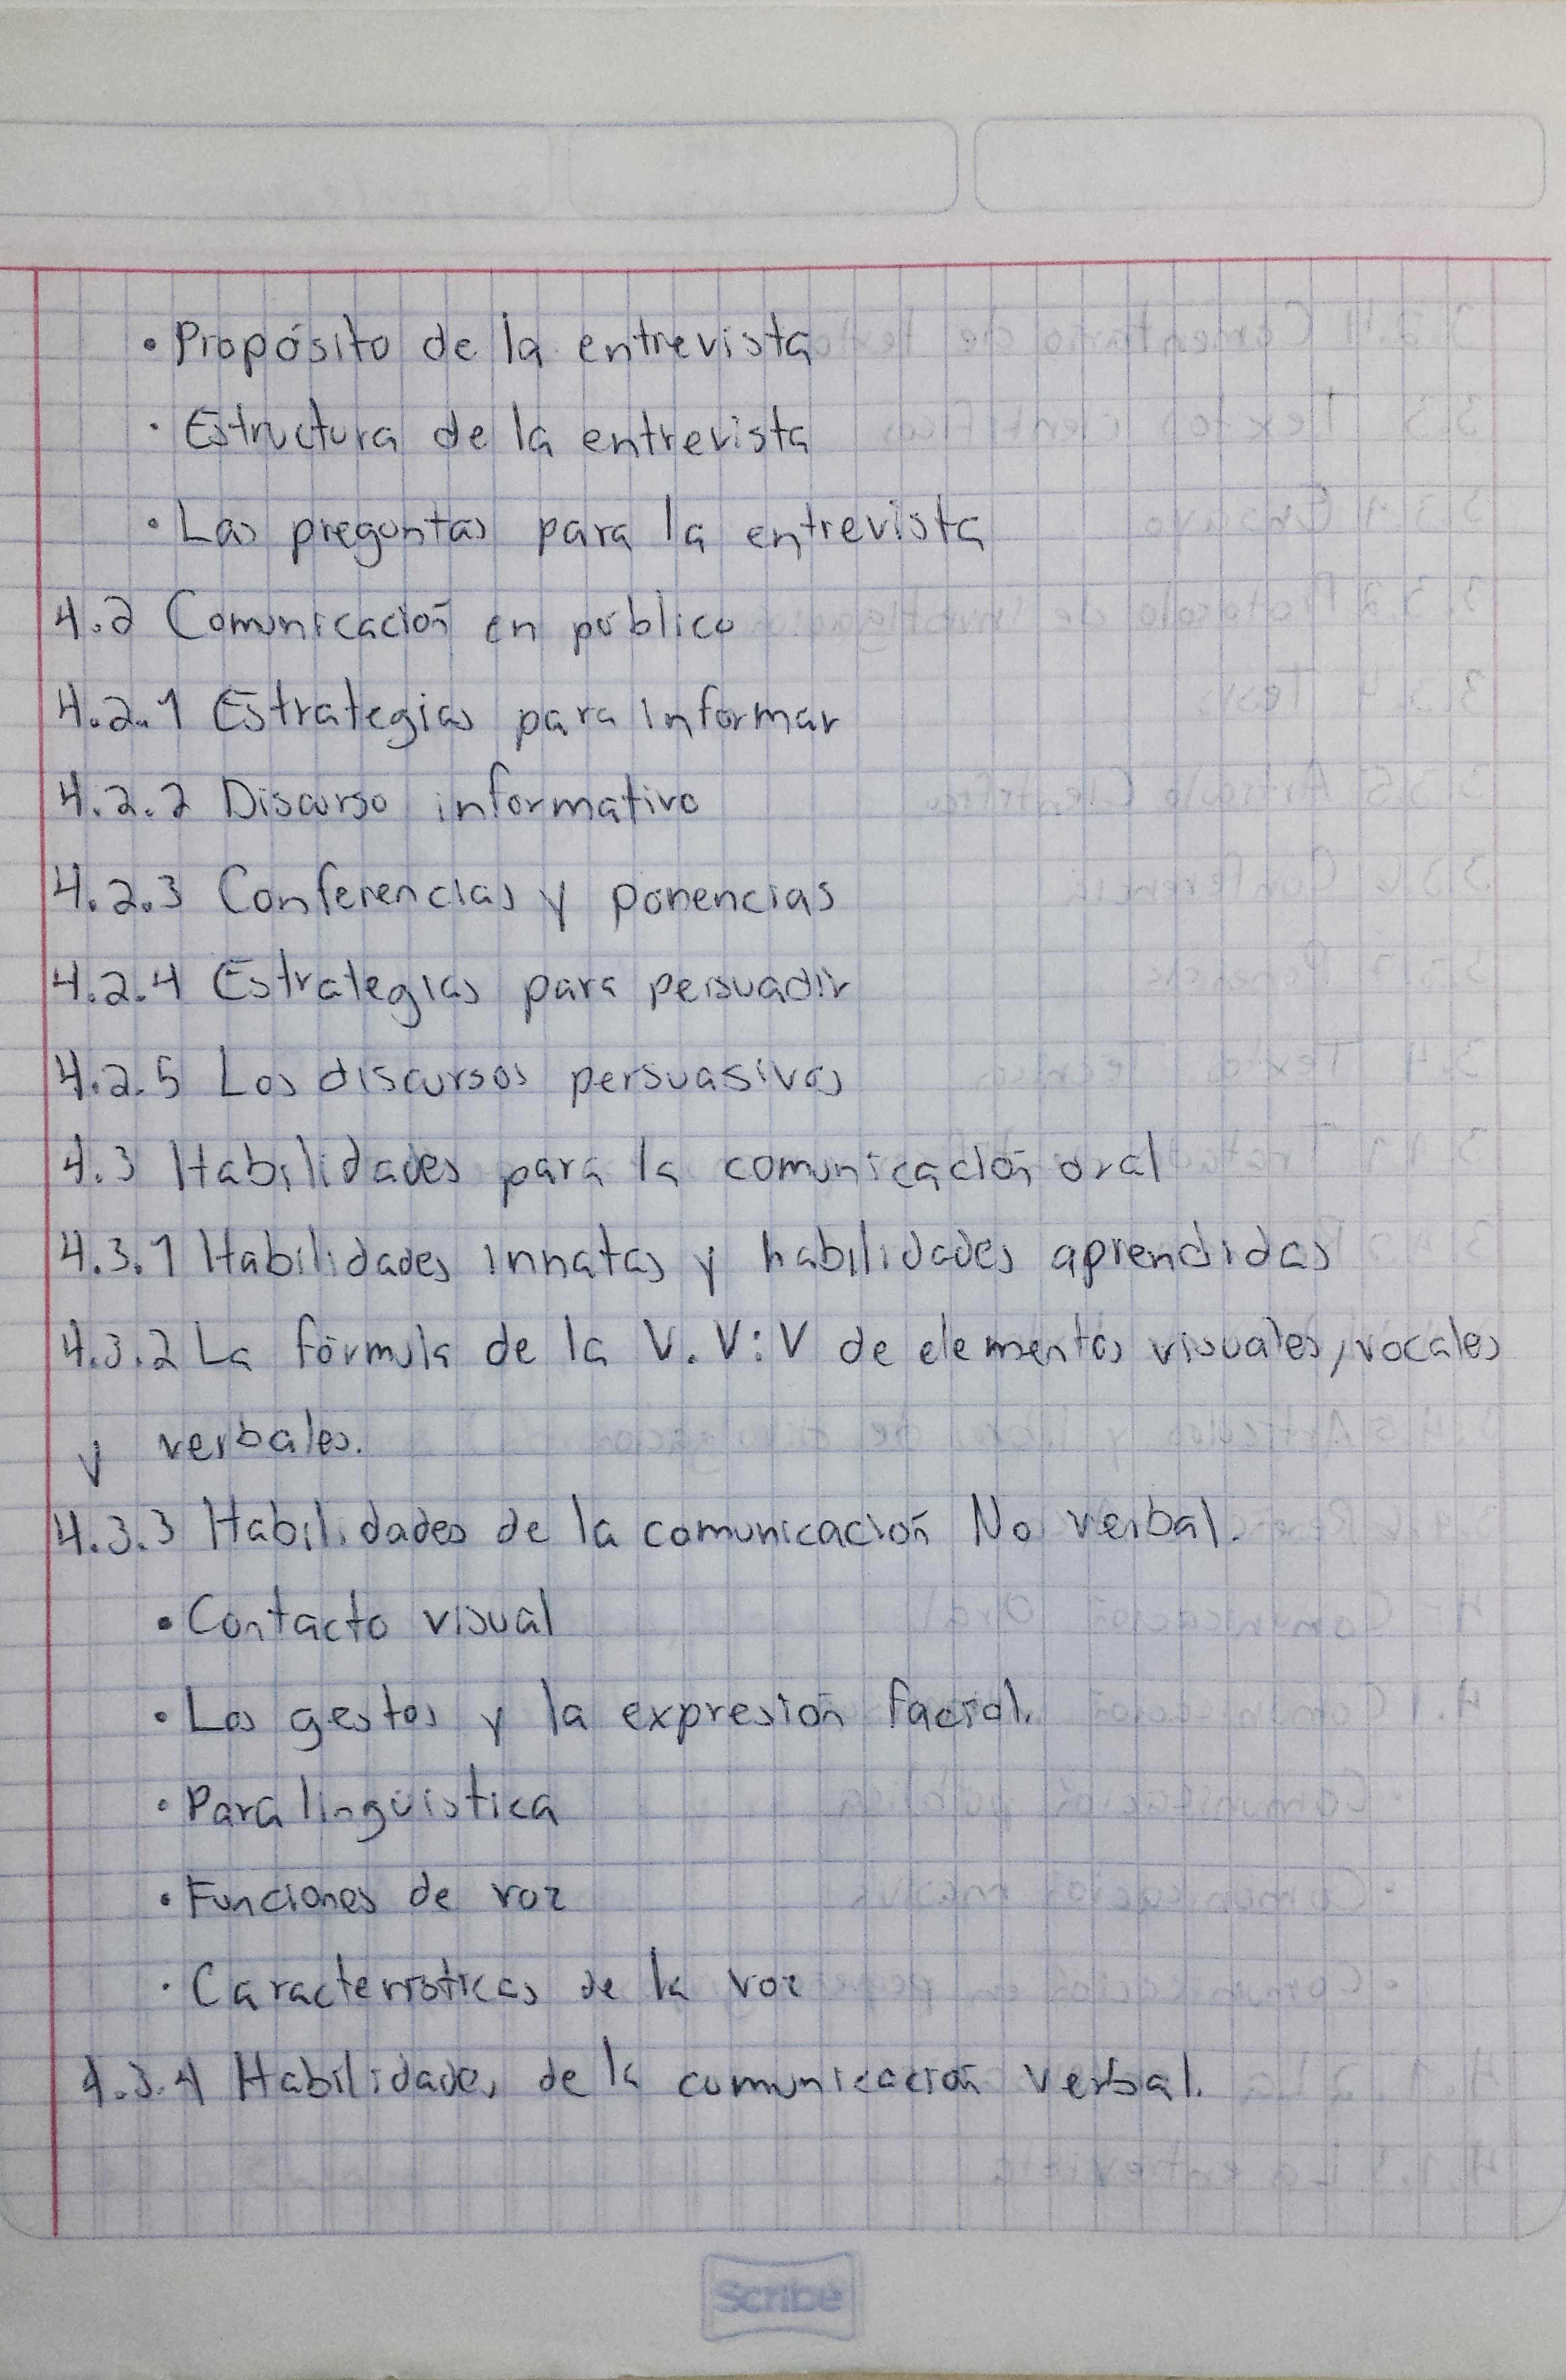 • Propósito de la entrevista
• Estructura de la entrevista
• Las preguntas para la entrevista
4.2 Comunicación en público
4.2.1 Estrategias para informar
4.2.2 Discurso informativo
4.2.3 Conferencias y ponencias
4.2.4 Estrategias para persuadir
4.2.5 Los discursos persuasivos
4.3 Habilidades para la comunicación oral
4.3.1 Habilidades innatas y habilidades aprendidas
4.3.2 La fórmula de la V.V:V de elementos visuales, vocales
y verbales.
4.3.3 Habilidades de la comunicación No verbal.
• Contacto visual
• Los gestos y la expresión facial.
• Paralingüistica
• Funciones de voz
• Características de la voz
4.3.4 Habilidades de la comunicación verbal.
Scribe